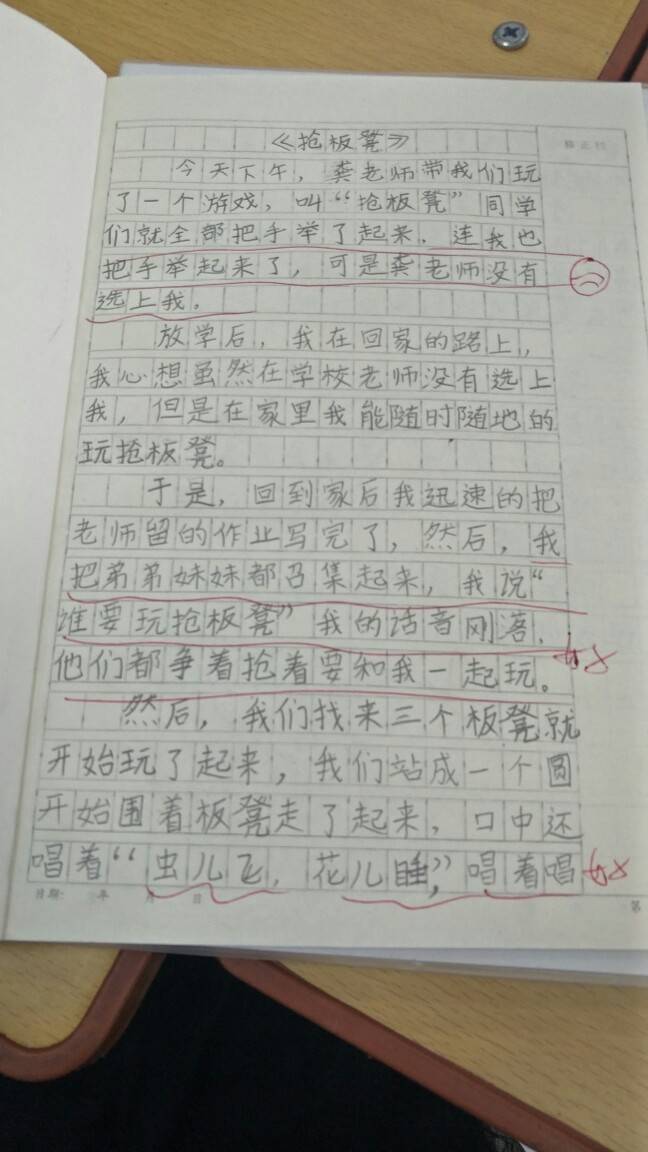 《抢板凳》
修正栏
今天下午，龚老师带我们玩
了一个游戏，叫“抢板凳”同学
们就全部把手举了起来，连我也
把手举起来了，可是龚老师没有
选上我。
放学后，我在回家的路上，
我心想虽然在学校老师没有选上
我，但是在家里我能随时随地的
玩抢板凳。
于是，回到家后我迅速的把
老师留的作业写完了，然后，我
把弟弟妹妹都召集起来，我说“
谁要玩抢板凳”我的话音刚落，
他们都争着抢着要和我一起玩。
然后，我们找来三个板凳就
开始玩了起来，我们站成一个圆
开始围着板凳走了起来，口中还
唱着“虫儿飞，花儿睡，”唱着唱
日期： 年 月 日
第